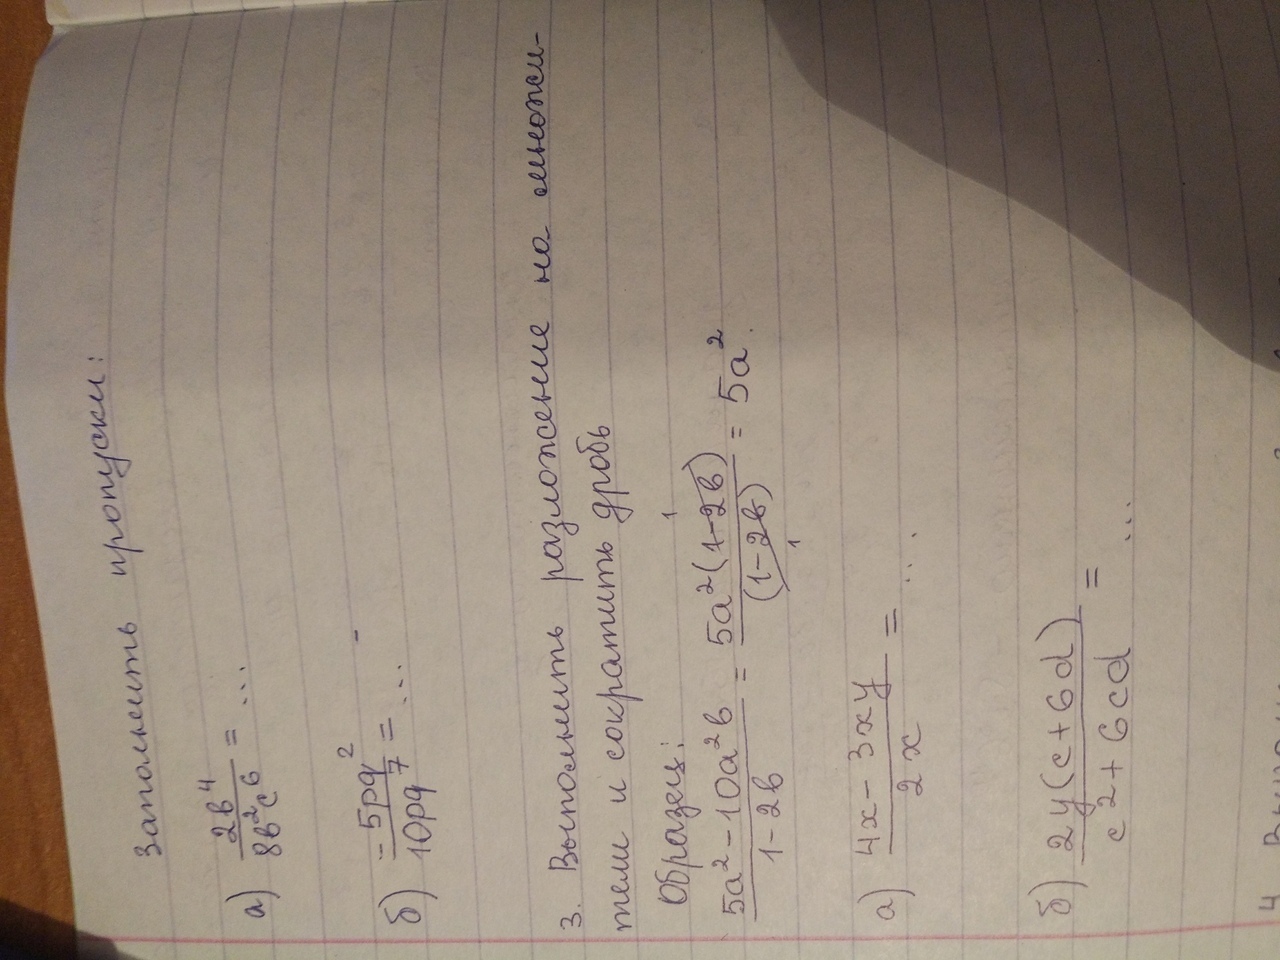 Заполнить пропуски:
а) 2в⁴/8в²с6 = ...
б) -5pq²/10pq⁷ = ...
3. Выполнить разложение на множи-
тели и сократить дробь
Образец:
5а²-10а²в/1-2в = 5а²(1-2в)/(1-2в) = 5а².
1
1
а) 4x-3xy/2x = ...
б) 2y(c+6d)/c²+6cd = ...
4